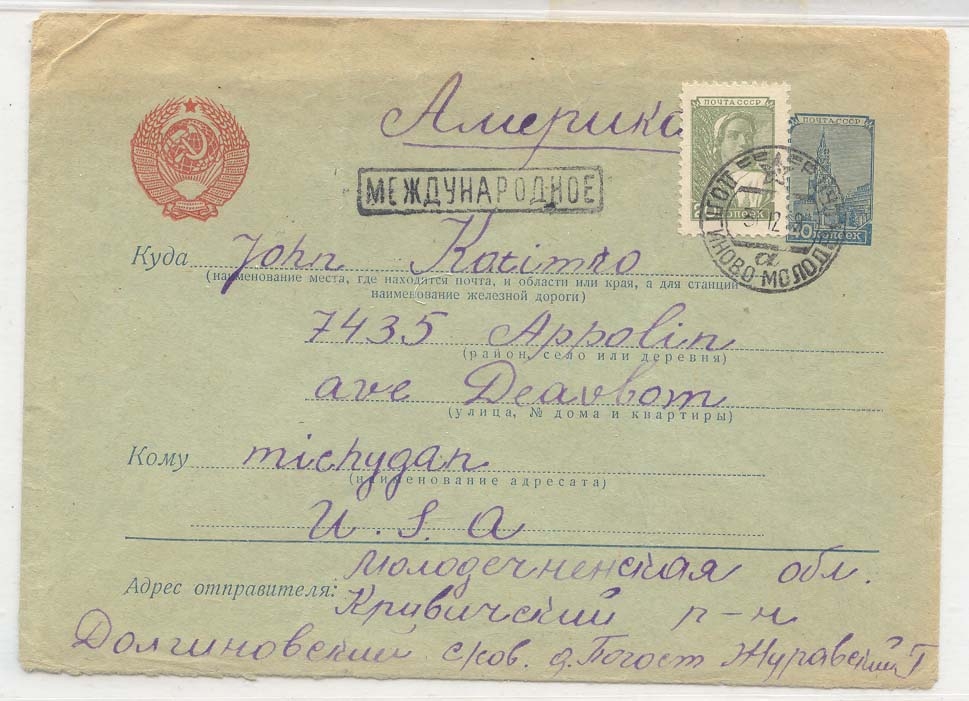 Америка
ПОЧТА СССР
ПОЧТА СССР
МЕЖДУНАРОДНОЕ
копеек
40 копеек
12
Куда John Katimko
(наименование места, где находится почта, и области или края, а для станции
наименование железной дороги)
7435 Appolin
(район, село или деревня)
ave Deavbom
(улица, № дома и квартиры)
Кому michygan
(наименование адресата)
U. S. A
Молодечненская обл.
Адрес отправителя: Кривичский р-н
Долгиновский с/сов. д. Погост Журавский Г